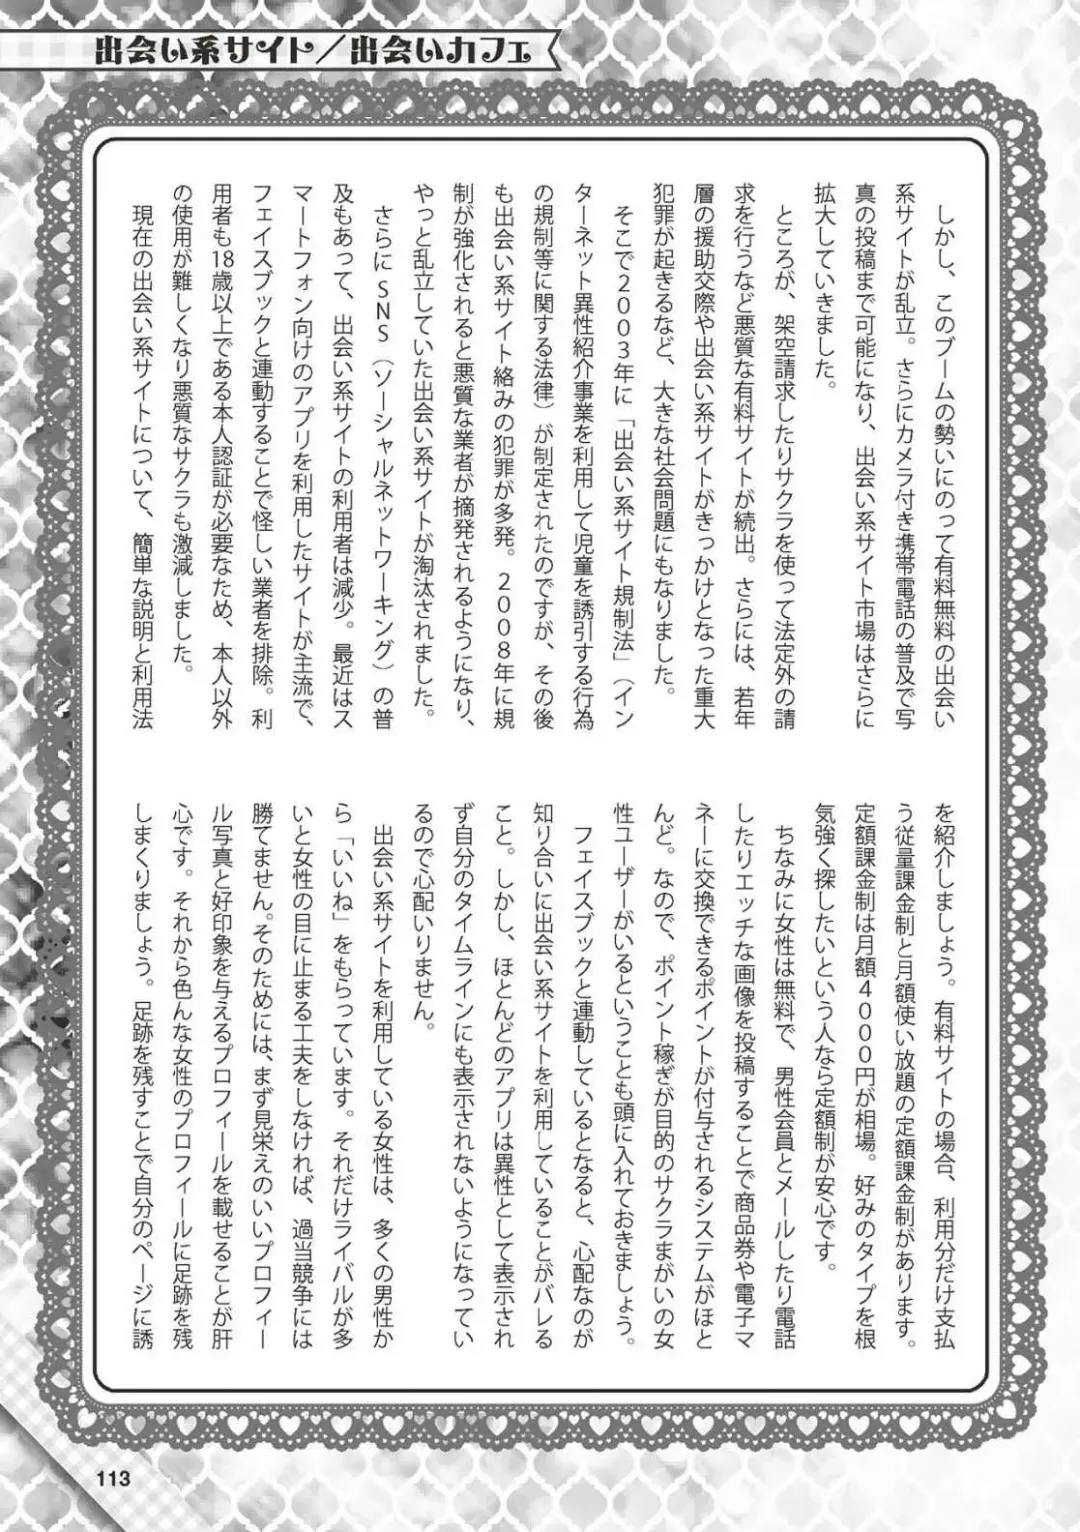 出会い系サイト／出会いカフェ
しかし、このブームの勢いにのって有料無料の出会い
系サイトが乱立。さらにカメラ付き携帯電話の普及で写
真の投稿まで可能になり、出会い系サイト市場はさらに
拡大していきました。
ところが、架空請求したりサクラを使って法定外の請
求を行うなど悪質な有料サイトが続出。さらには、若年
層の援助交際や出会い系サイトがきっかけとなった重大
犯罪が起きるなど、大きな社会問題にもなりました。
そこで２００３年に「出会い系サイト規制法」（イン
ターネット異性紹介事業を利用して児童を誘引する行為
の規制等に関する法律）が制定されたのですが、その後
も出会い系サイト絡みの犯罪が多発。２００８年に規
制が強化されると悪質な業者が摘発されるようになり、
やっと乱立していた出会い系サイトが淘汰されました。
さらにSNS（ソーシャルネットワーキング）の普
及もあって、出会い系サイトの利用者は減少。最近はス
マートフォン向けのアプリを利用したサイトが主流で、
フェイスブックと連動することで怪しい業者を排除。利
用者も18歳以上である本人認証が必要なため、本人以外
の使用が難しくなり悪質なサクラも激減しました。
現在の出会い系サイトについて、簡単な説明と利用法
を紹介しましょう。有料サイトの場合、利用分だけ支払
う従量課金制と月額使い放題の定額課金制があります。
定額課金制は月額４０００円が相場。好みのタイプを根
気強く探したいという人なら定額制が安心です。
ちなみに女性は無料で、男性会員とメールしたり電話
したりエッチな画像を投稿することで商品券や電子マ
ネーに交換できるポイントが付与されるシステムがほと
んど。なので、ポイント稼ぎが目的のサクラまがいの女
性ユーザーがいるということも頭に入れておきましょう。
フェイスブックと連動しているとなると、心配なのが
知り合いに出会い系サイトを利用していることがバレる
こと。しかし、ほとんどのアプリは異性として表示され
ず自分のタイムラインにも表示されないようになってい
るので心配いりません。
出会い系サイトを利用している女性は、多くの男性か
ら「いいね」をもらっています。それだけライバルが多
いと女性の目に止まる工夫をしなければ、過当競争には
勝てません。そのためには、まず見栄えのいいプロフィー
ル写真と好印象を与えるプロフィールを載せることが肝
心です。それから色んな女性のプロフィールに足跡を残
しまくりましょう。足跡を残すことで自分のページに誘
113